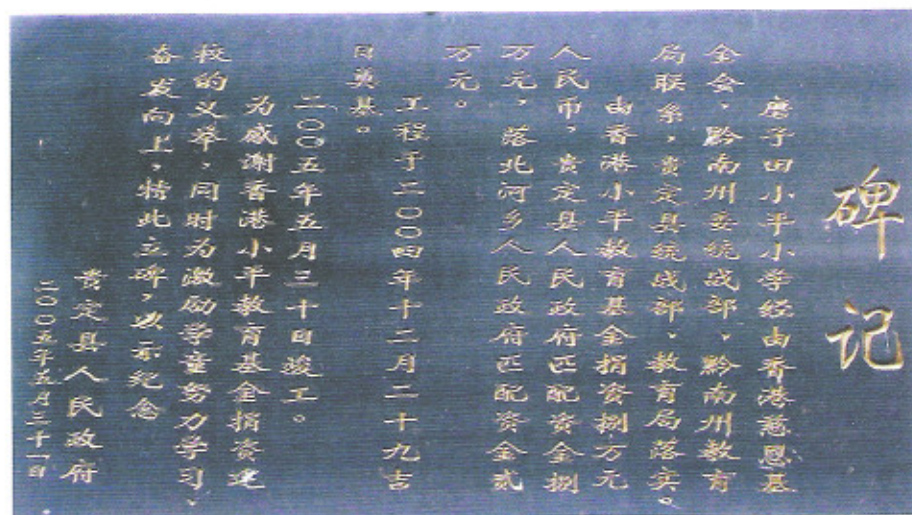 碑记
磨子田小平小学经由香港慈恩基
金会，黔南州委统战部，黔南州教育
局联系，贵定县统战部、教育局落实。
由香港小平教育基金捐资捌万元
人民币，贵定县人民政府匹配资金捌
万元，落北河乡人民政府匹配资金贰
万元。
工程于二〇〇四年十二月二十九吉
日奠基。
二〇〇五年五月三十日竣工。
为感谢香港小平教育基金捐资建
校的义举，同时为激励学童努力学习、
奋发向上，特此立碑，以示纪念
贵定县人民政府
二〇〇五年五月三十一日